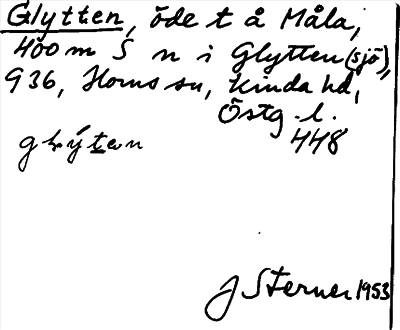 Glytten, öde t å Måla,
400 m S n i Glytten (sjö),
936, Horns sn, Kinda hd,
Östg. l.
448
glýtan
J Sterner 1953